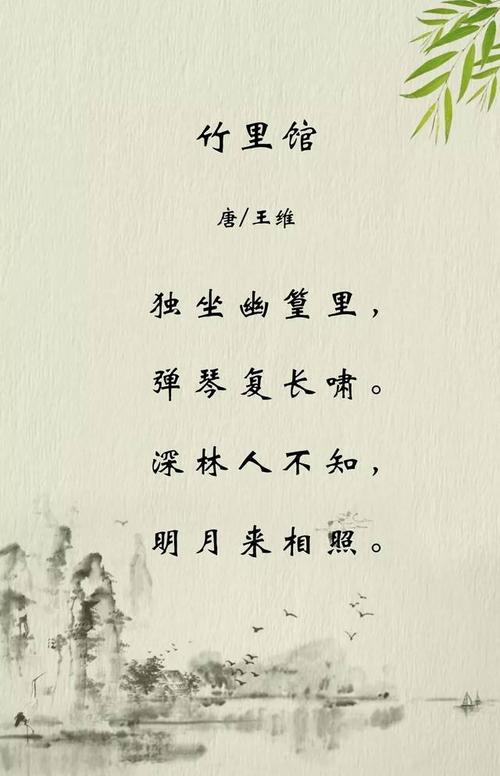 竹里馆
唐/王维
独坐幽篁里，
弹琴复长啸。
深林人不知，
明月来相照。